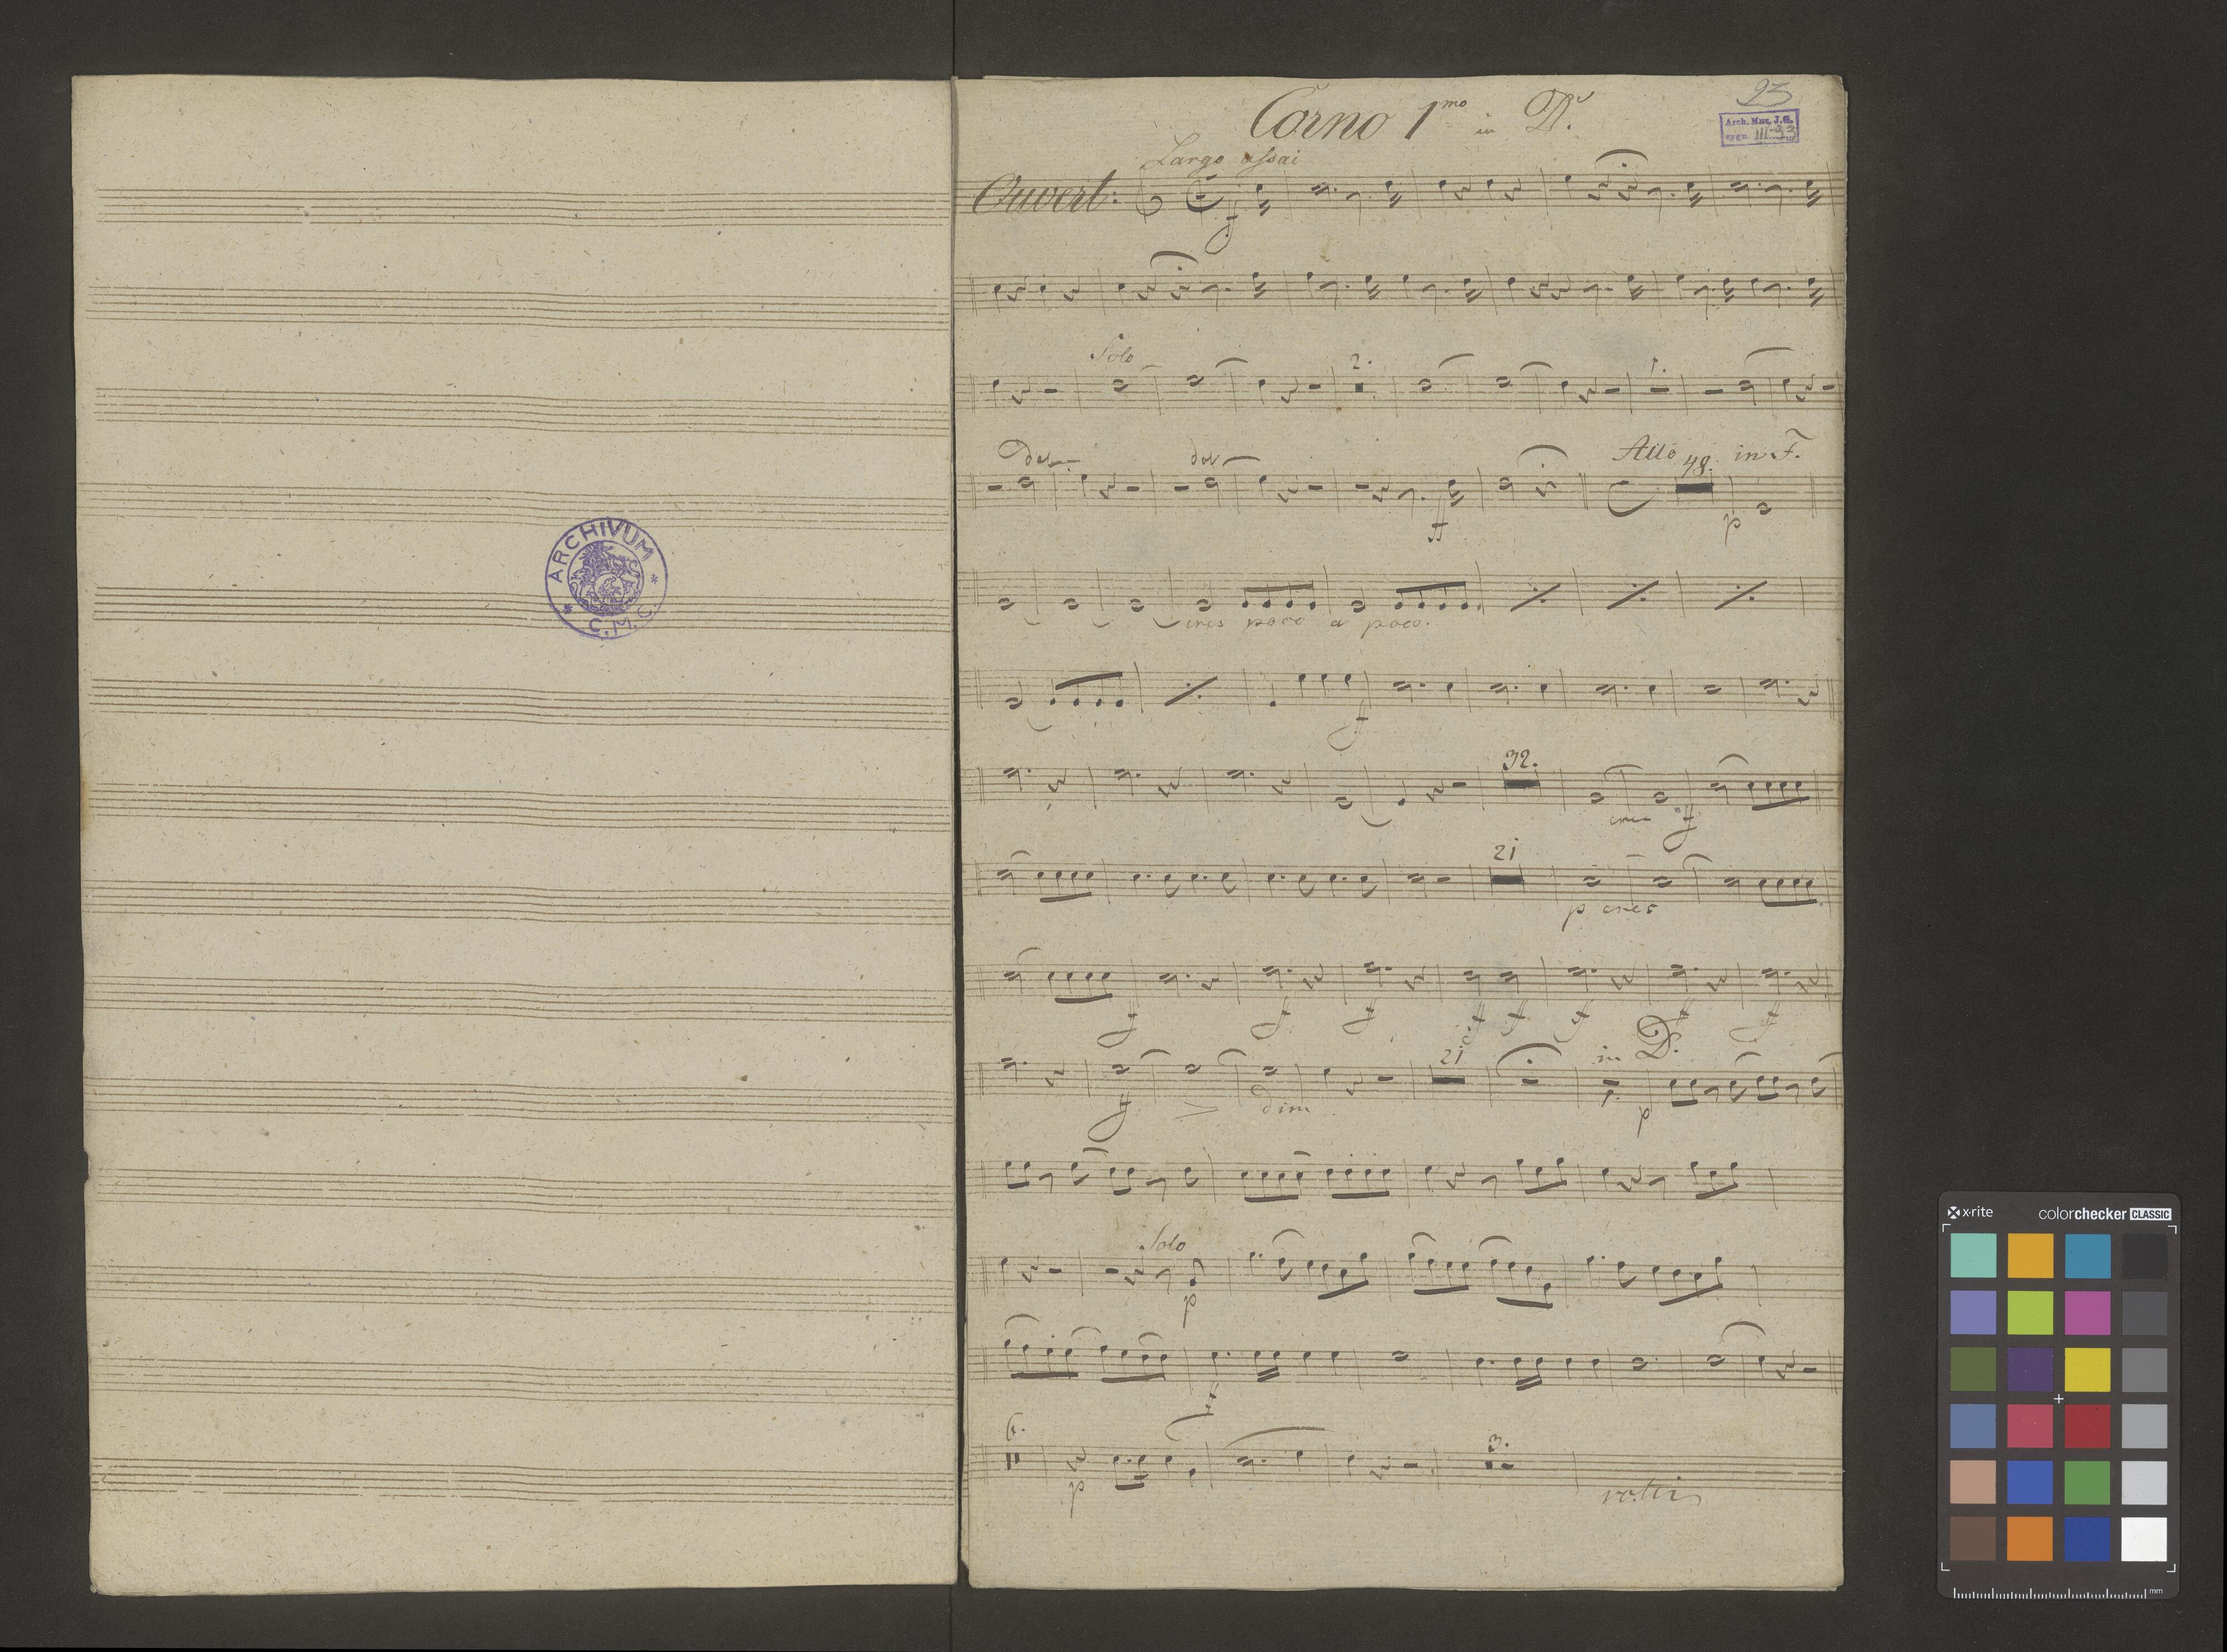 ARCHIVUM
* C.M.C. *
23
Corno 1mo in D.
Arch. Muz. J.G.
sygn. III-93
Largo assai
Ouvert:
f
Solo
2.
1.
dol
dol
Allo 48. in F.
ff
p
cres poco a poco.
f
32.
cres f
21
p cres
f f f f f f f f
21 in D.
f > dim p
Solo
p
6. 3.
p
volti
x-rite colorchecker CLASSIC
mm